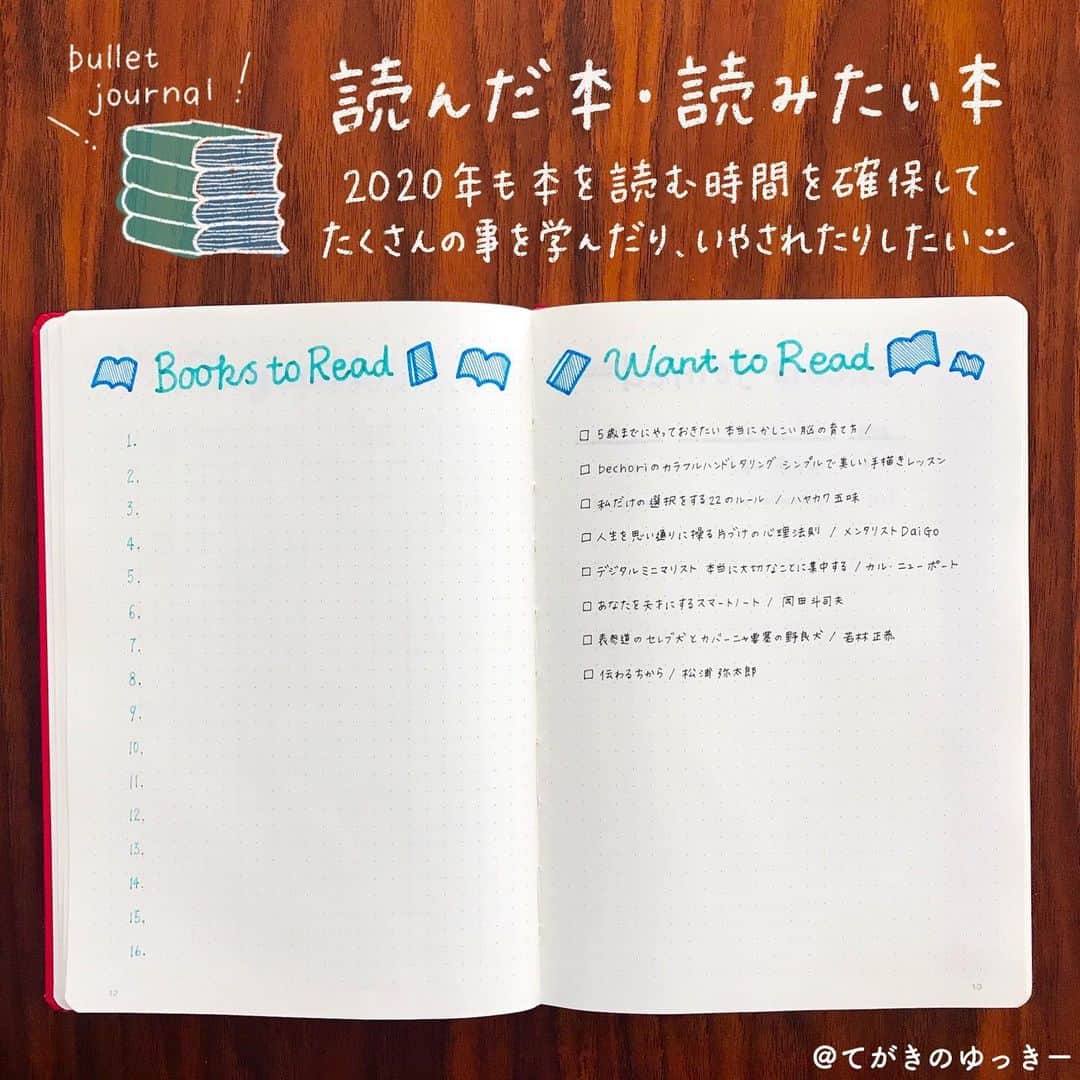 bullet
journal!
読んだ本・読みたい本
2020年も本を読む時間を確保して
たくさんの事を学んだり、いやされたりしたい
Books to Read
1.
2.
3.
4.
5.
6.
7.
8.
9.
10.
11.
12.
13.
14.
15.
16.
12
Want to Read
□ 5歳までにやっておきたい 本当にかしこい脳の育て方 /
□ bechoriのカラフルハンドレタリング シンプルで美しい手描きレッスン
□ 私だけの選択をする22のルール / ハヤカワ五味
□ 人生を思い通りに操る片づけの心理法則 / メンタリストDaiGo
□ デジタルミニマリスト 本当に大切なことに集中する / カル・ニューポート
□ あなたを天才にするスマートノート / 岡田斗司夫
□ 表参道のセレブ犬とカバーニャ要塞の野良犬 / 若林正恭
□ 伝わるちから / 松浦弥太郎
13
@てがきのゆっきー